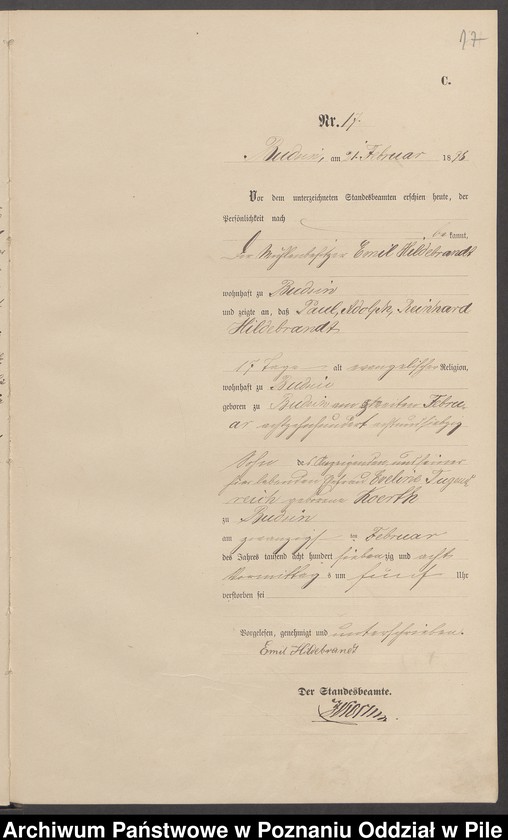 17
C.
Nr. 17.
Budsin, am 21. Februar 1878
Vor dem unterzeichneten Standesbeamten erschien heute, der
Persönlichkeit nach
be kannt,
der Mühlenbesitzer Emil Hildebrandt
wohnhaft zu Budsin
und zeigte an, daß Paul, Adolph, Reinhard
Hildebrandt
17 Tage alt evangelischer Religion,
wohnhaft zu Budsin
geboren zu Budsin am Februar
achtzehnhundert achtundsiebzig
Sohn des Anzeigenden und seiner
lebenden Ehefrau Eveline
geborene Koerth
zu Budsin
am zwanzigsten Februar
des Jahres tausend acht hundert siebenzig und acht
Vormittags um fünf Uhr
verstorben sei
Vorgelesen, genehmigt und unterschrieben.
Emil Hildebrandt
Der Standesbeamte.
Archiwum Państwowe w Poznaniu Oddział w Pile